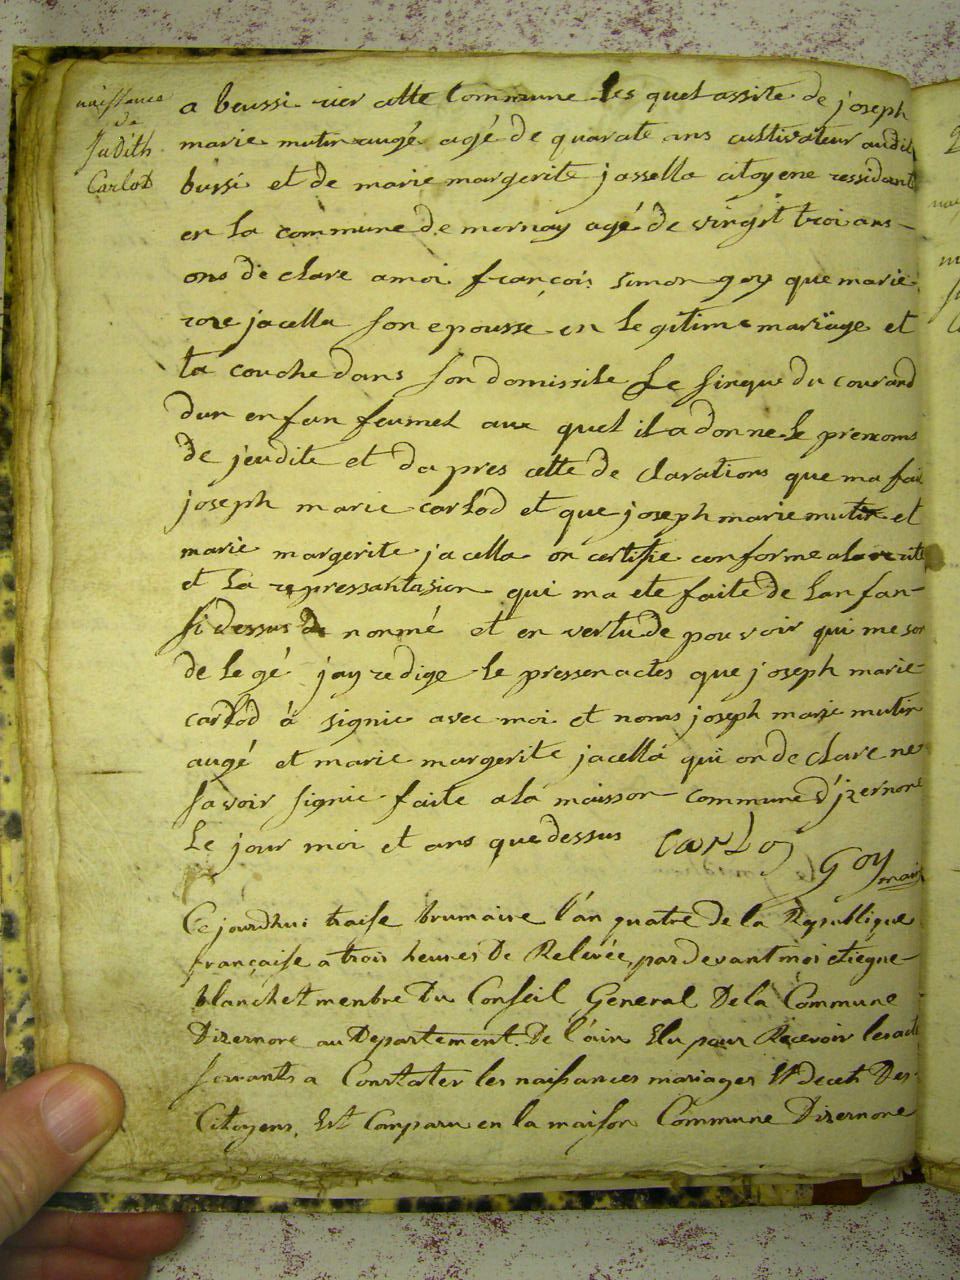 naissance
de
Judith
Carlod
a beussi rier cette Commune Les quel assite de joseph
marie mutin augé agé de quarate ans cultivateur audit
bussi et de marie margerite jassella citoyene ressidant
en la commune de mornay agé de vingt troi ans
ons de clare a moi françois simon goy que marie
roze jacella son epousse en legitime mariäge et
ta couche dans son domissile Le sinque du courand
dun enfan feumel aux quel il a donne Le prenoms
de jeudite et da pres cette de clarations que ma fai
joseph marie carlod et que joseph marie mutin et
marie margerite jacella on certifie conforme a la verite
et La repressantasion qui ma ete faite de lanfan
si dessus de nonmé et en vertu de pouvoir qui me son
de legé jay redige le pressen actes que joseph marie
carlod à signie avec moi et nom joseph marie mutin
augé et marie margerite jacella qui on de clare ne
savoir signie faite a la maisson commune d'jzernore
Le jour moi et ans que dessus CarLod Goy maire
Ce jourdhui traise brumaire l'an quatre de la Republique
française a trois heures De Relevée, par devant moi etiegne
blanchet menbre Du Conseil Géneral De la Commune
Dizernore au Departement De l'ain Elu pour Recevoir les acte
servants a Constater les naissances mariages Et decet Des
Citoyens, Est Comparu en la maison Commune Dizernore